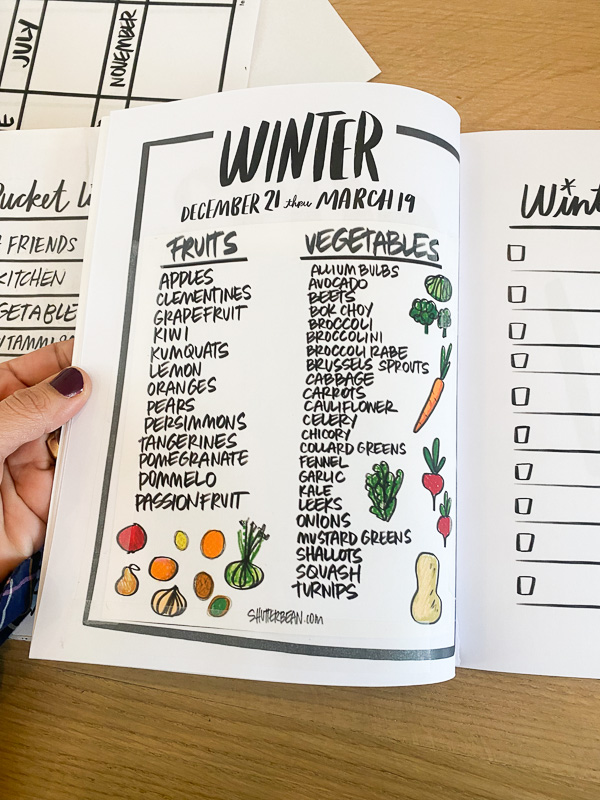 JULY
NOVEMBER
FRIENDS
KITCHEN
WINTER
DECEMBER 21 thru MARCH 19
FRUITS
APPLES
CLEMENTINES
GRAPEFRUIT
KIWI
KUMQUATS
LEMON
ORANGES
PEARS
PERSIMMONS
TANGERINES
POMEGRANATE
POMMELO
PASSIONFRUIT
VEGETABLES
ALLIUM BULBS
AVOCADO
BEETS
BOK CHOY
BROCCOLI
BROCCOLINI
BROCCOLI RABE
BRUSSELS SPROUTS
CABBAGE
CARROTS
CAULIFLOWER
CELERY
CHICORY
COLLARD GREENS
FENNEL
GARLIC
KALE
LEEKS
ONIONS
MUSTARD GREENS
SHALLOTS
SQUASH
TURNIPS
SHUTTERBEAN.COM